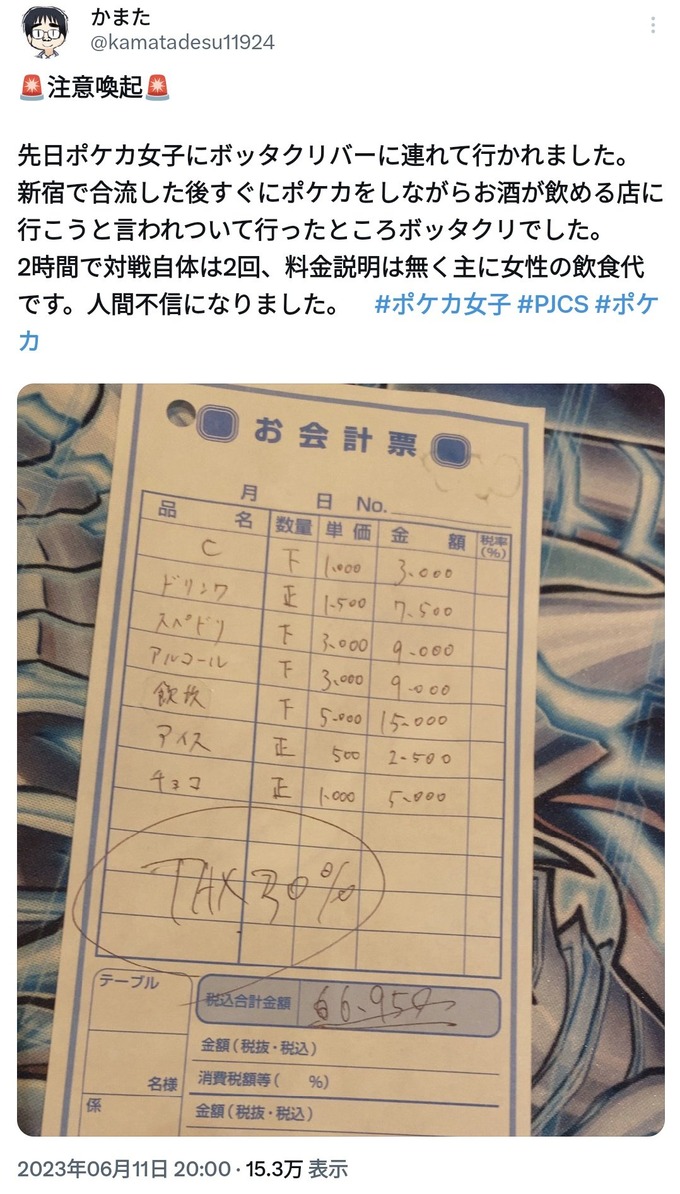 かまた
@kamatadesu11924
🚨注意喚起🚨
先日ポケカ女子にボッタクリバーに連れて行かれました。
新宿で合流した後すぐにポケカをしながらお酒が飲める店に
行こうと言われついて行ったところボッタクリでした。
2時間で対戦自体は2回、料金説明は無く主に女性の飲食代
です。人間不信になりました。 #ポケカ女子 #PJCS #ポケ
カ
お会計票
月 日 No.
品名 数量 単価 金額 税率(%)
C 下 1.000 3.000
ドリンク 正 1.500 7.500
スペドリ 下 3.000 9.000
アルコール 下 3.000 9.000
飲放 下 5.000 15.000
アイス 正 500 2.500
チョコ 正 1.000 5.000
TAX30%
テーブル
税込合計金額 66.950
金額(税抜・税込)
名様
消費税額等( %)
係
金額(税抜・税込)
2023年06月11日 20:00 · 15.3万 表示